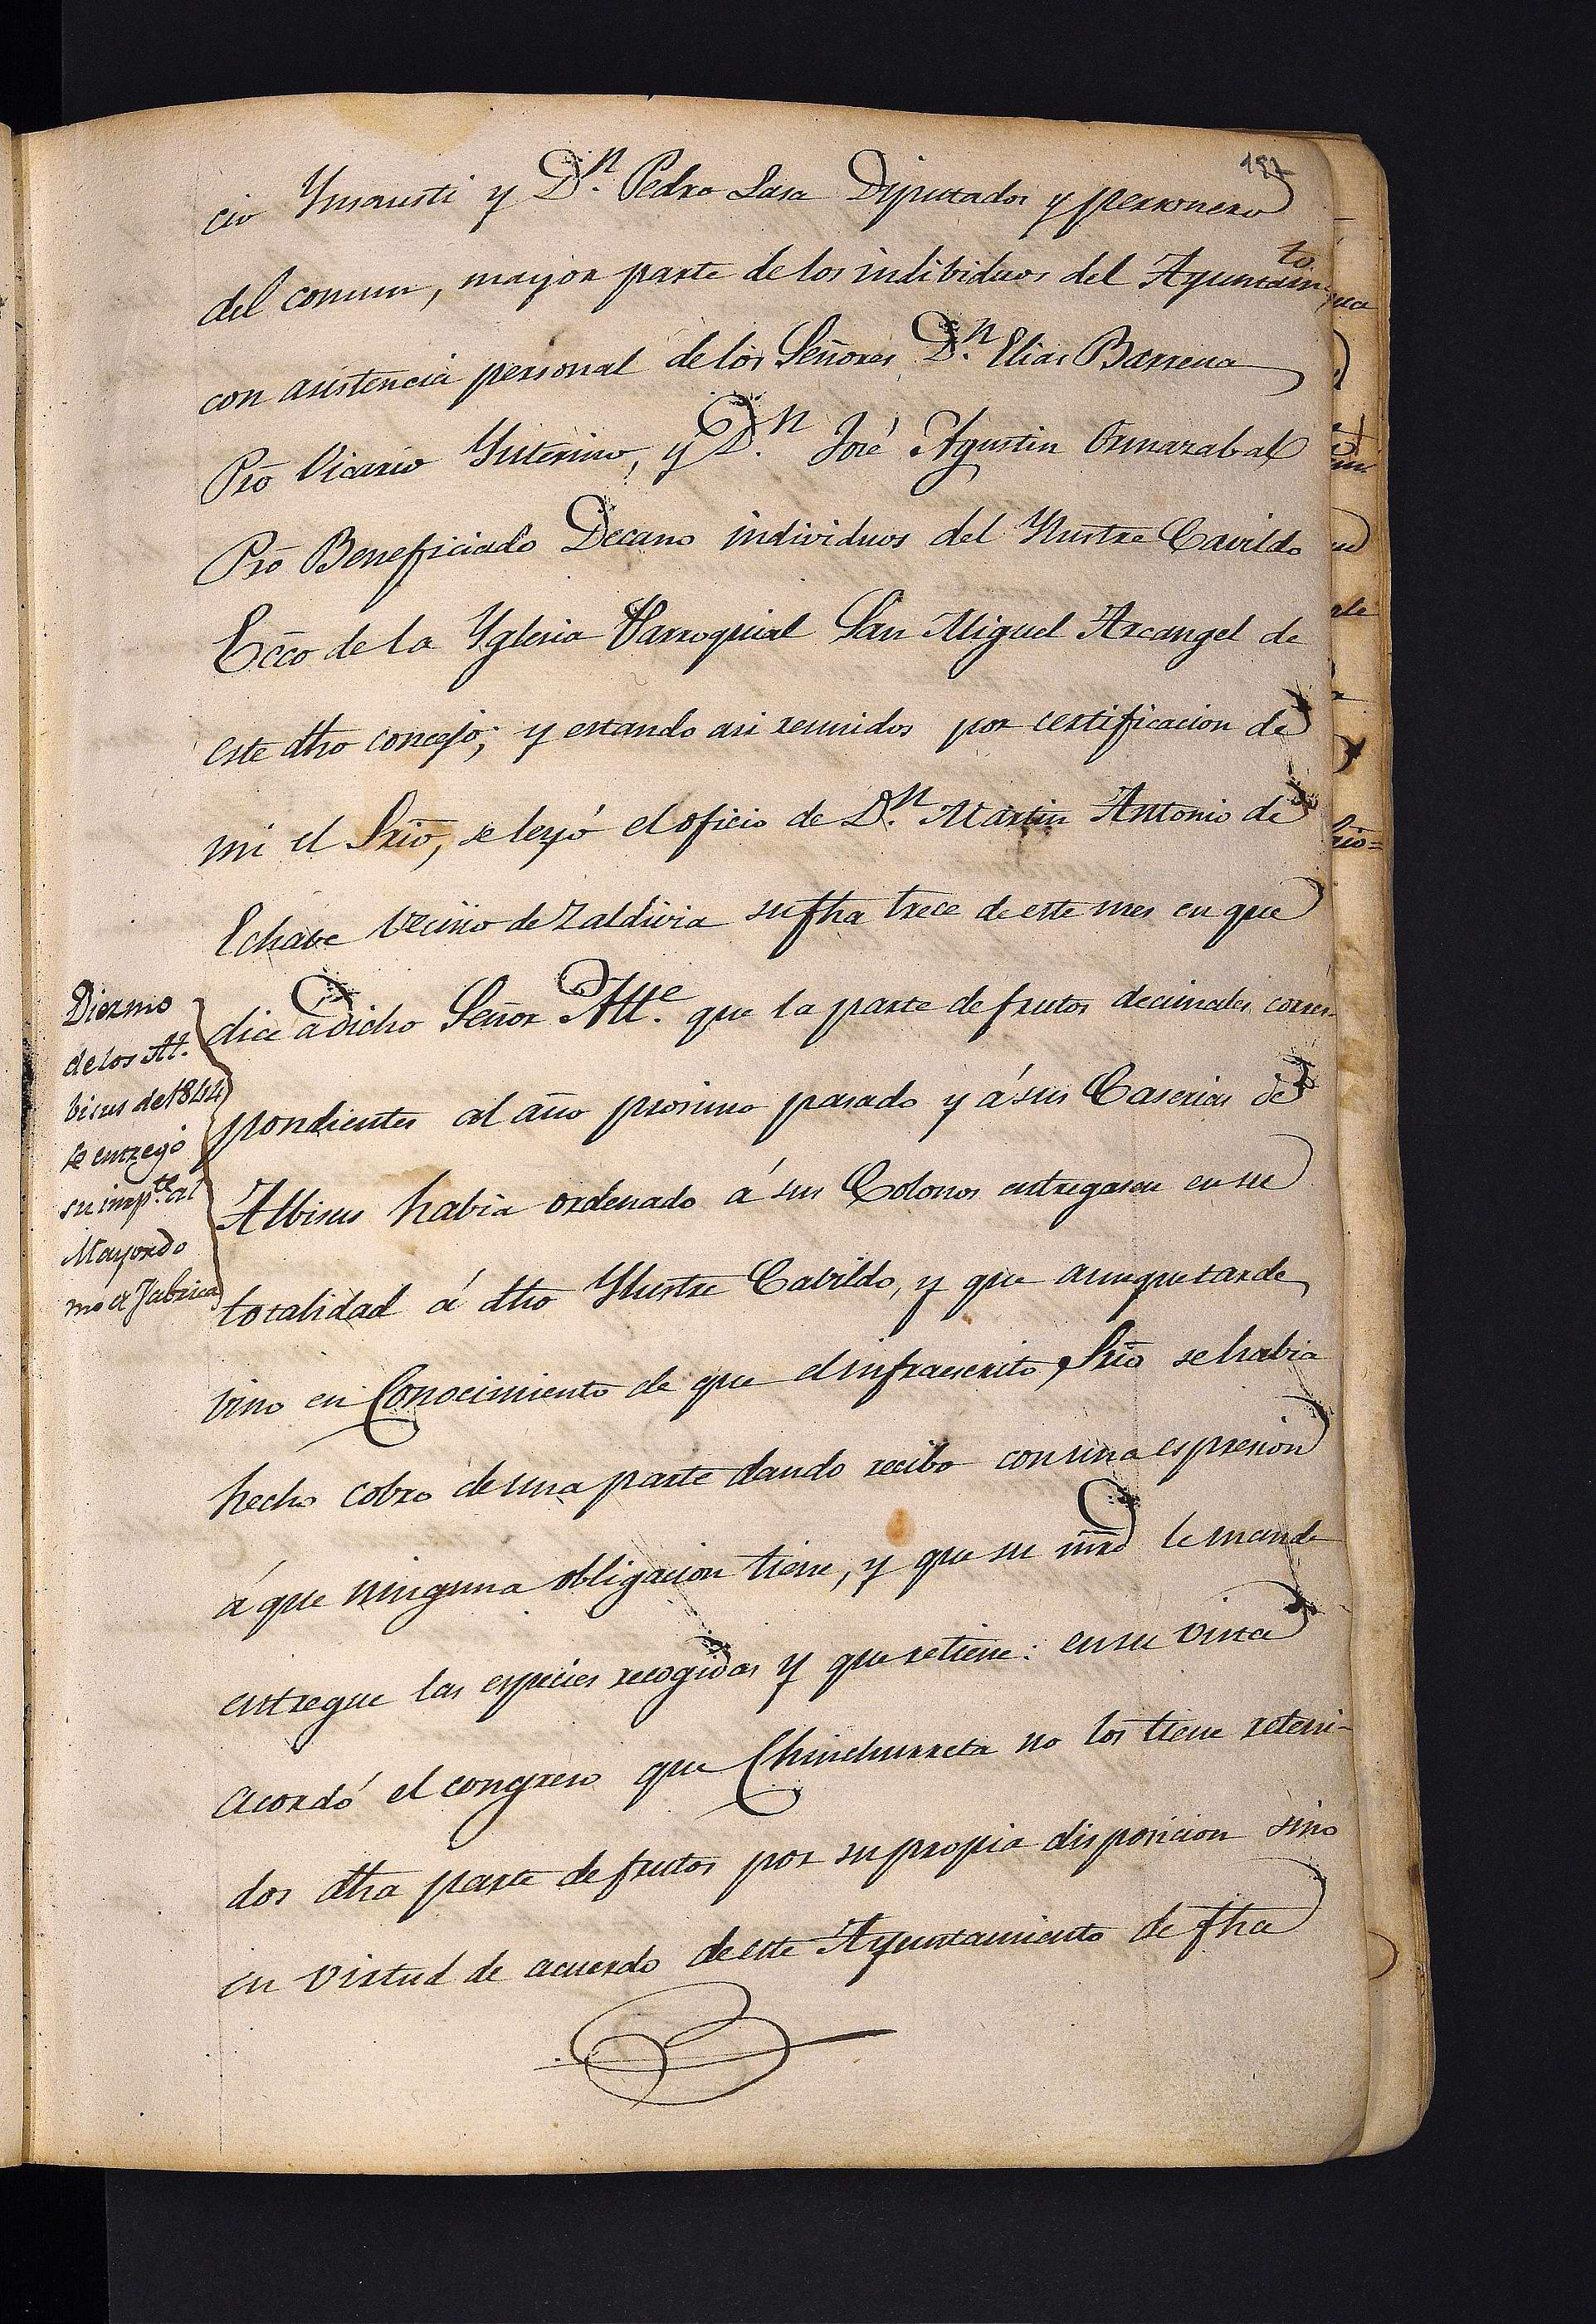 187
cio Ynsausti y D.ⁿ Pedro Lasa Diputados y personero
del comun, mayor parte de los indibiduos del Ayuntam.to
con asistencia personal de los Señores D.ⁿ Elias Barrena
Pro Vicario Ynterino, y D.ⁿ José Agustin Ormazabal
Pro Beneficiado Decano individuos del Ylustre Cavildo
Ecco de la Yglesia Parroquial San Miguel Arcangel de
este dho concejo; y estando asi reunidos por certificacion de
mi el Srio, se leyó el oficio de D.ⁿ Martin Antonio de
Echave vecino de Zaldivia su fha trece de este mes en que
dice a dicho Señor All.e que la parte de frutos decimales corres-
pondientes al año prosimo pasado y á sus Caserias de
Albisus habia ordenado á sus Colonos entregasen en su
totalidad á dho Ylustre Cabildo, y que aunque tarde
vino en Conocimiento de que el infraescrito Srio se habia
hecho cobro de una parte dando recibo con una espresion
á que ninguna obligacion tiene, y que su mrd le mande
entregue las especies recogidas y que retiene: en su vista
acordó el congreso que Chinchurreta no los tiene reteni-
dos dha parte de frutos por su propia disposicion sino
en virtud de acuerdo de este Ayuntamiento de fha
Diezmo
de los Al.
bisus de 1844
se entregó
su imp.te al
Mayordo
mo de Fabrica